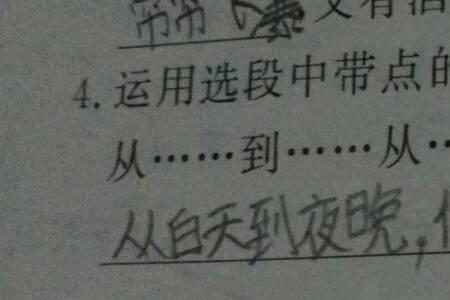 又有
4.运用选段中带点的
从……到……从…
从白天到夜晚,